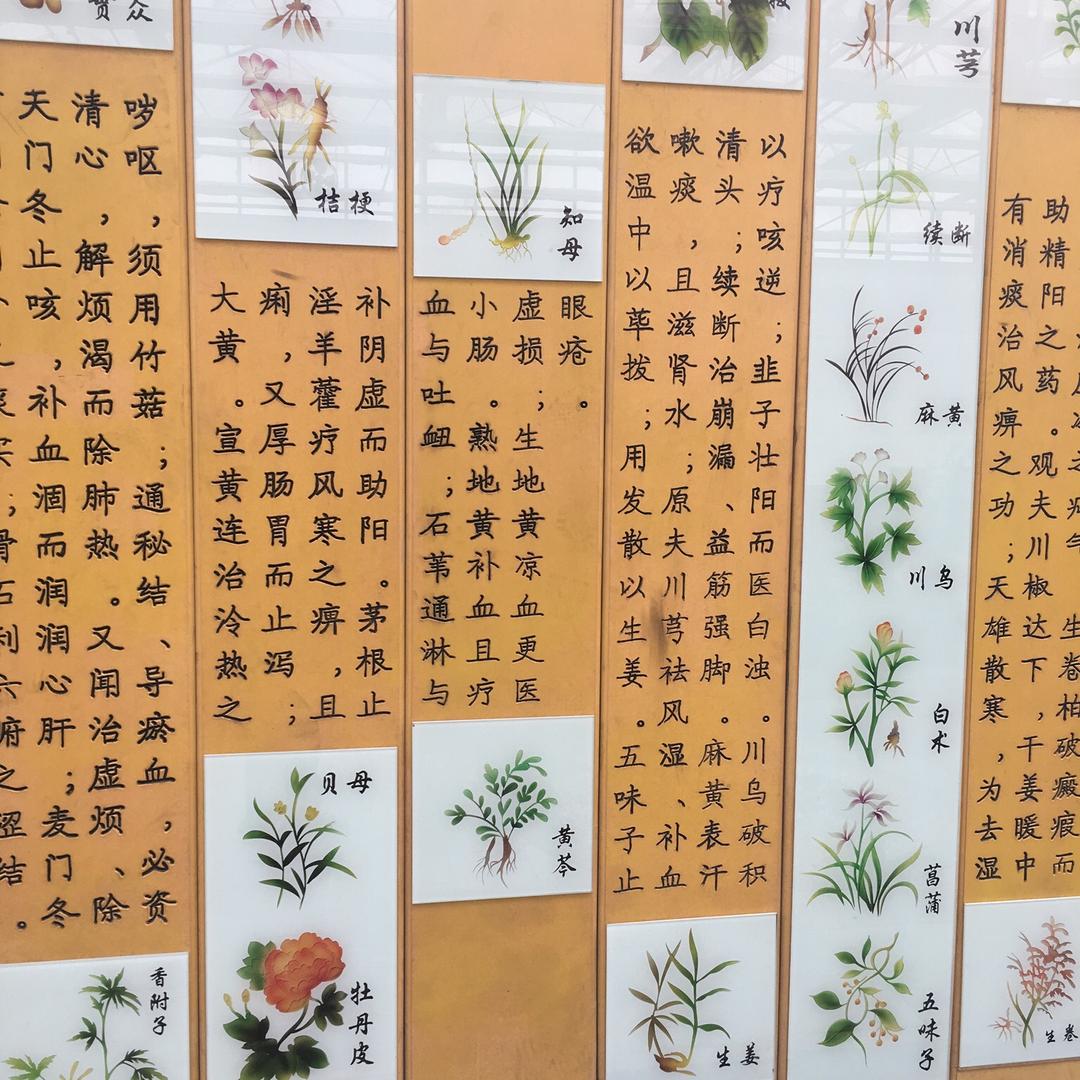 贯众
实；滑石利六腑之涩结。
天门冬止咳，补血涸而润润心肝；麦门冬
清心，解烦渴而除肺热。又闻治虚烦、除
哕呕，须用竹菇；通秘结、导瘀血，必资
香附子
桔梗
大黄。宣黄连治泠热之
痢，又厚肠胃而止泻；
淫羊藿疗风寒之痹，且
补阴虚而助阳。茅根止
贝母
牡丹皮
知母
血与吐衄；石苇通淋与
小肠。熟地黄补血且疗
虚损；生地黄凉血更医
眼疮。
黄芩
欲温中以荜拨；用发散以生姜。五味子止
嗽痰，且滋肾水；原夫川芎祛风湿、补血
清头；续断治崩漏、益筋强脚。麻黄表汗
以疗咳逆；韭子壮阳而医白浊。川乌破积
生姜
川芎
续断
麻黄
川乌
白术
菖蒲
五味子
有消痰治风痹之功；天雄散寒，为去湿
助精阳之药。观夫川椒达下，干姜暖中
生卷柏破癥瘕而
生卷